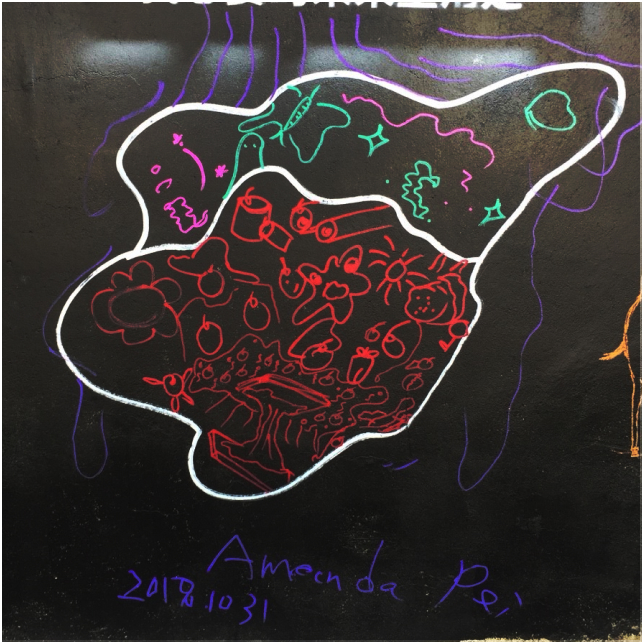 Amanda Pei
2018.10 31